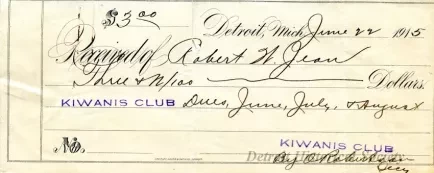 $3.00
Detroit, Mich. June 22 1915
Received of Robert W. Jean
Three & no/100 Dollars.
KIWANIS CLUB Dues, June, July, & August
No.
KIWANIS CLUB
By
Secy